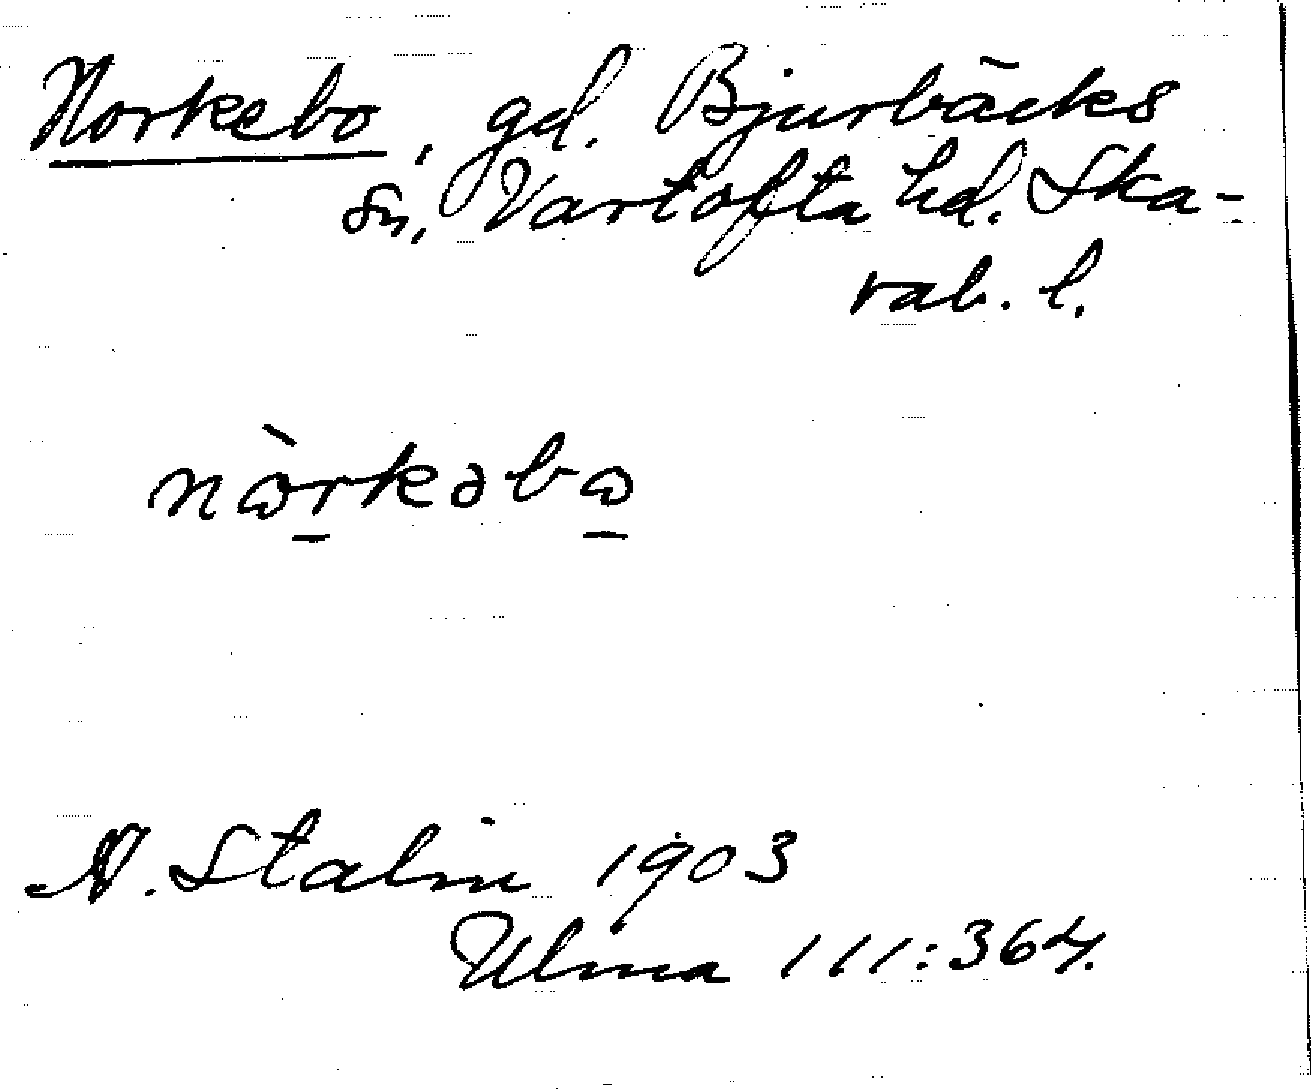 Norkebo, gd. Bjurbäcks
sn, Vartofta hd. Ska-
rab. l.
nòrkəbo
A. Stalin 1903
Ulma 111:364.